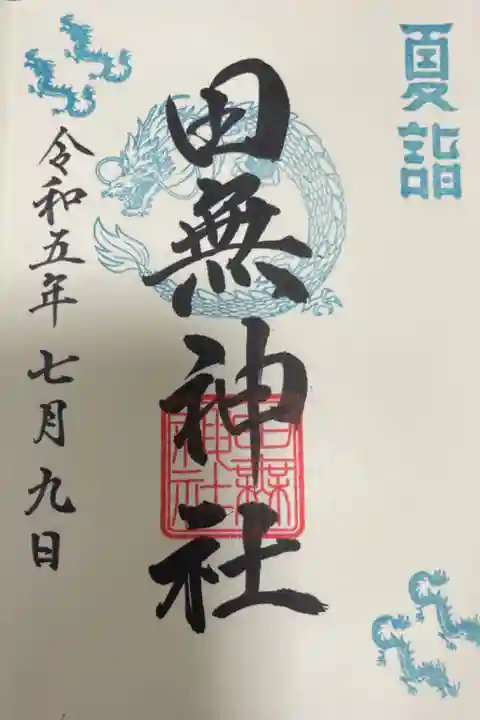 夏詣
田無神社
令和五年七月九日
田無
神社